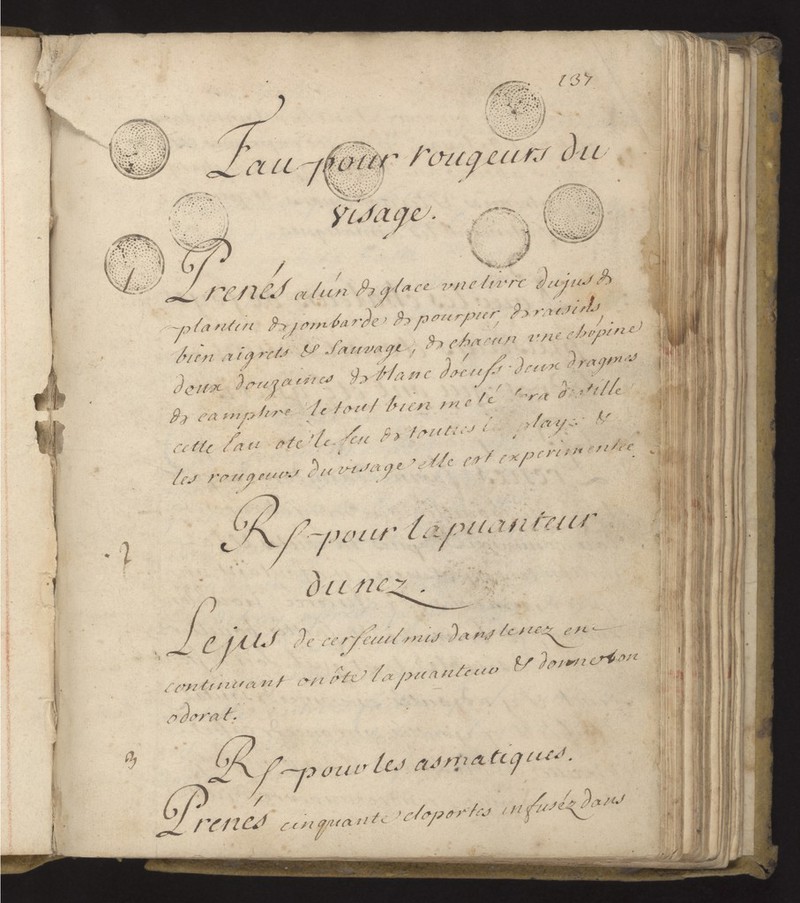 137
Eau pour rougeurs du
visage.
1
Prenés alún de glace vne livre du jus de
plantin de jombarde de pourpier de raisins
bien aigrets & sauvage, de chacún vne chópine
deux douzaines de blanc dóeufs deux dragmes
de camphre le tout bien mélé sera distillé
cette Eau ote le feu de touttes playes &
les rougeurs du visage elle est experimentée.
2
R/ pour la puanteur
du nez.
Le jus de cerfeuil mis dans le nez en
continuant on ôte la puanteur & donne bon
odorat.
3
R/ pour les asmatiques.
Prenés cinquante cloportes infuséz dans